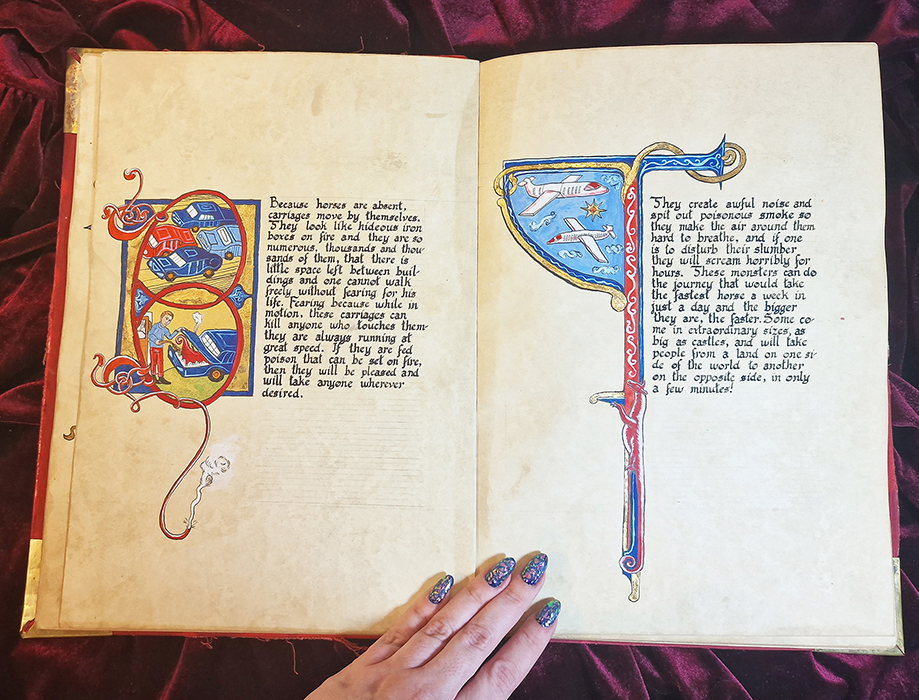 Because horses are absent,
carriages move by themselves.
They look like hideous iron
boxes on fire and they are so
numerous, thousands and thou-
sands of them, that there is
little space left between buil-
dings and one cannot walk
freely without fearing for his
life. Fearing because while in
motion, these carriages can
kill anyone who touches them-
they are always running at
great speed. If they are fed
poison that can be set on fire,
then they will be pleased and
will take anyone wherever
desired.
They create awful noise and
spit out poisonous smoke so
they make the air around them
hard to breathe, and if one
is to disturb their slumber
they will scream horribly for
hours. These monsters can do
the journey that would take
the fastest horse a week in
just a day and the bigger
they are, the faster. Some co-
me in extraordinary sizes, as
big as castles, and will take
people from a land on one si-
de of the world to another
on the opposite side, in only
a few minutes!